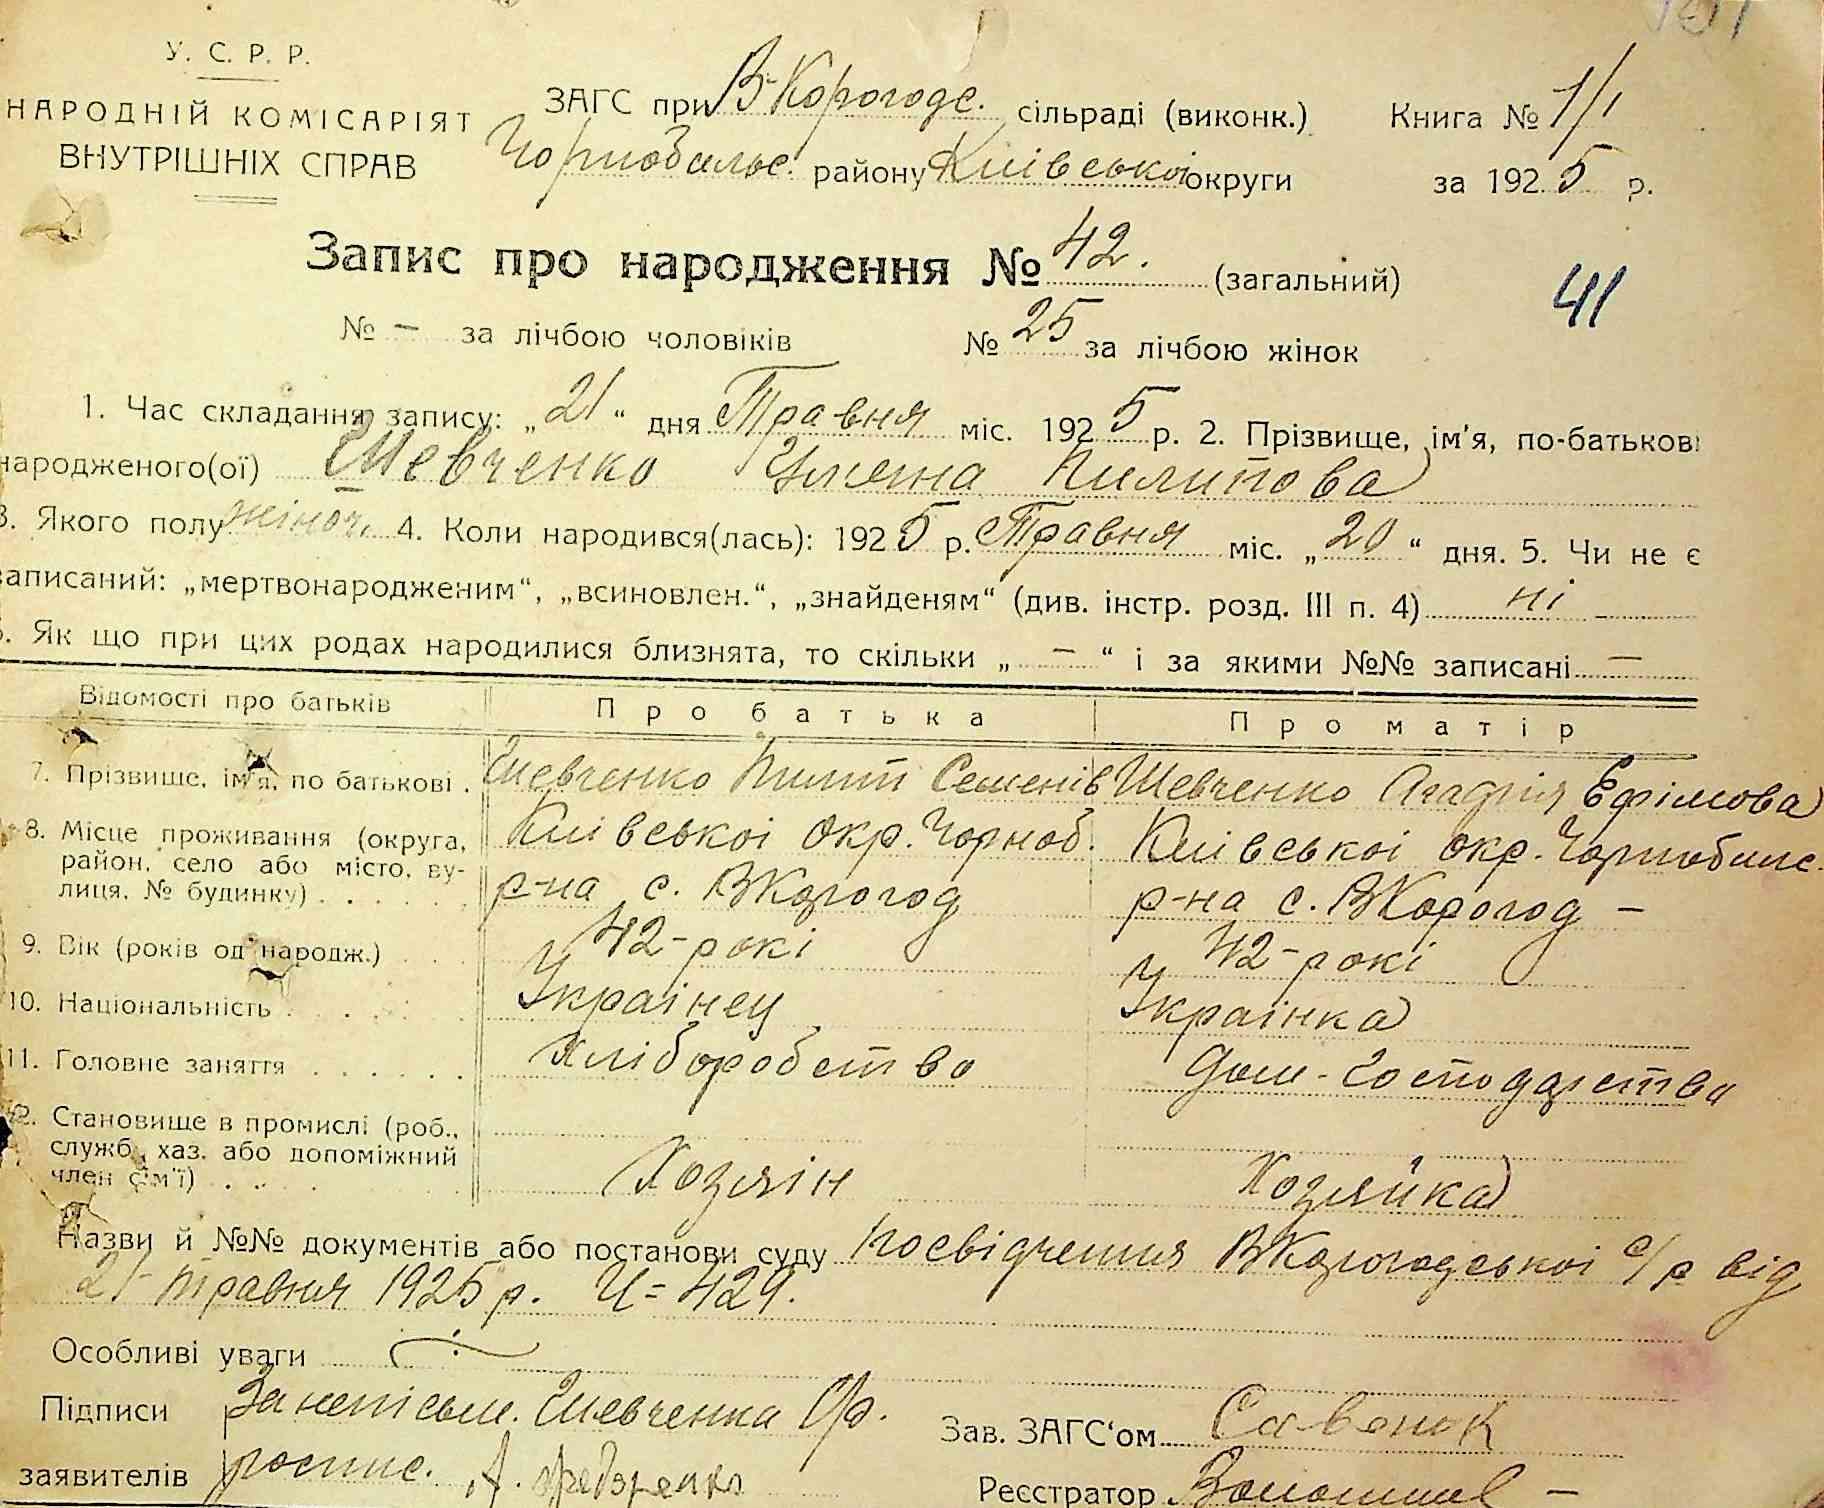 У. С. Р. Р.
НАРОДНІЙ КОМІСАРІЯТ
ВНУТРІШНІХ СПРАВ
ЗАГС при В-Корогодс. сільраді (виконк.)
Чорнобильс. району Київської округи
Книга № 1/1
за 1925 р.
Запис про народження № 42. (загальний)
41
№ — за лічбою чоловіків № 25 за лічбою жінок
1. Час складання запису: „21“ дня Травня міс. 1925 р. 2. Прізвище, ім'я, по-батькові
народженого(ої) Шевченко Уляна Пилипова
3. Якого полу жіноч. 4. Коли народився(лась): 1925 р. Травня міс. „20“ дня. 5. Чи не є
записаний: „мертвонародженим“, „всиновлен.“, „знайденям“ (див. інстр. розд. III п. 4) ні
6. Як що при цих родах народилися близнята, то скільки „—“ і за якими №№ записані —
Відомості про батьків Про батька Про матір
7. Прізвище, ім'я, по батькові . Шевченко Пилип Семенів Шевченко Агафія Ефімова
8. Місце проживання (округа, район, село або місто, вулиця, № будинку) Київськоі окр. Чорноб. р-на с. ВКорогод Київськоі окр. Чорнобильс. р-на с. ВКорогод —
9. Вік (років од народж.) 42-рокі 42-рокі
10. Національність Украінец Украінка
11. Головне заняття Хлiборобство Дом-Господарство
12. Становище в промислі (роб., служб., хаз. або допоміжний член сім'ї) Хозяін Хозяйка
Назви й №№ документів або постанови суду Посвідчення ВКорогодськоі с/р від
21 травня 1925 р. Ч=429.
Особливі уваги
Підписи За неписьм. Шевченка
заявителів роспис. А.
Зав. ЗАГС'ом Савенок
Реєстратор